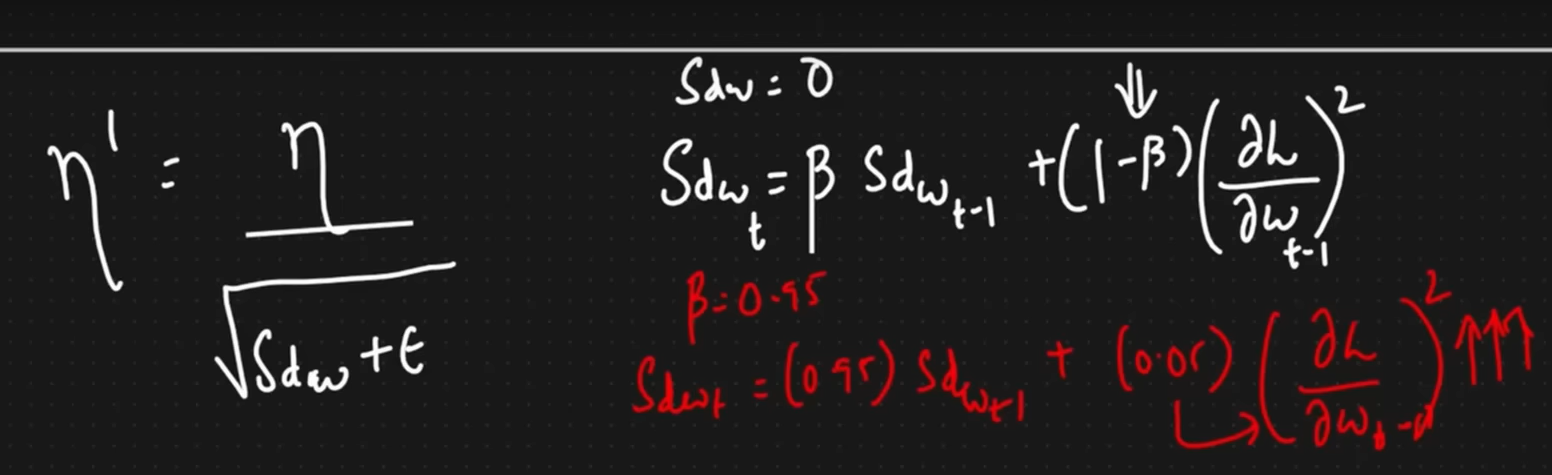 η' = η / √(Sdw + ε)
Sdw = 0
Sdw_t = β Sdw_{t-1} + (1-β)(∂L/∂w_{t-1})²
β = 0.95
Sdw_t = (0.95) Sdw_{t-1} + (0.05)(∂L/∂w_{t-1})² ↑↑↑